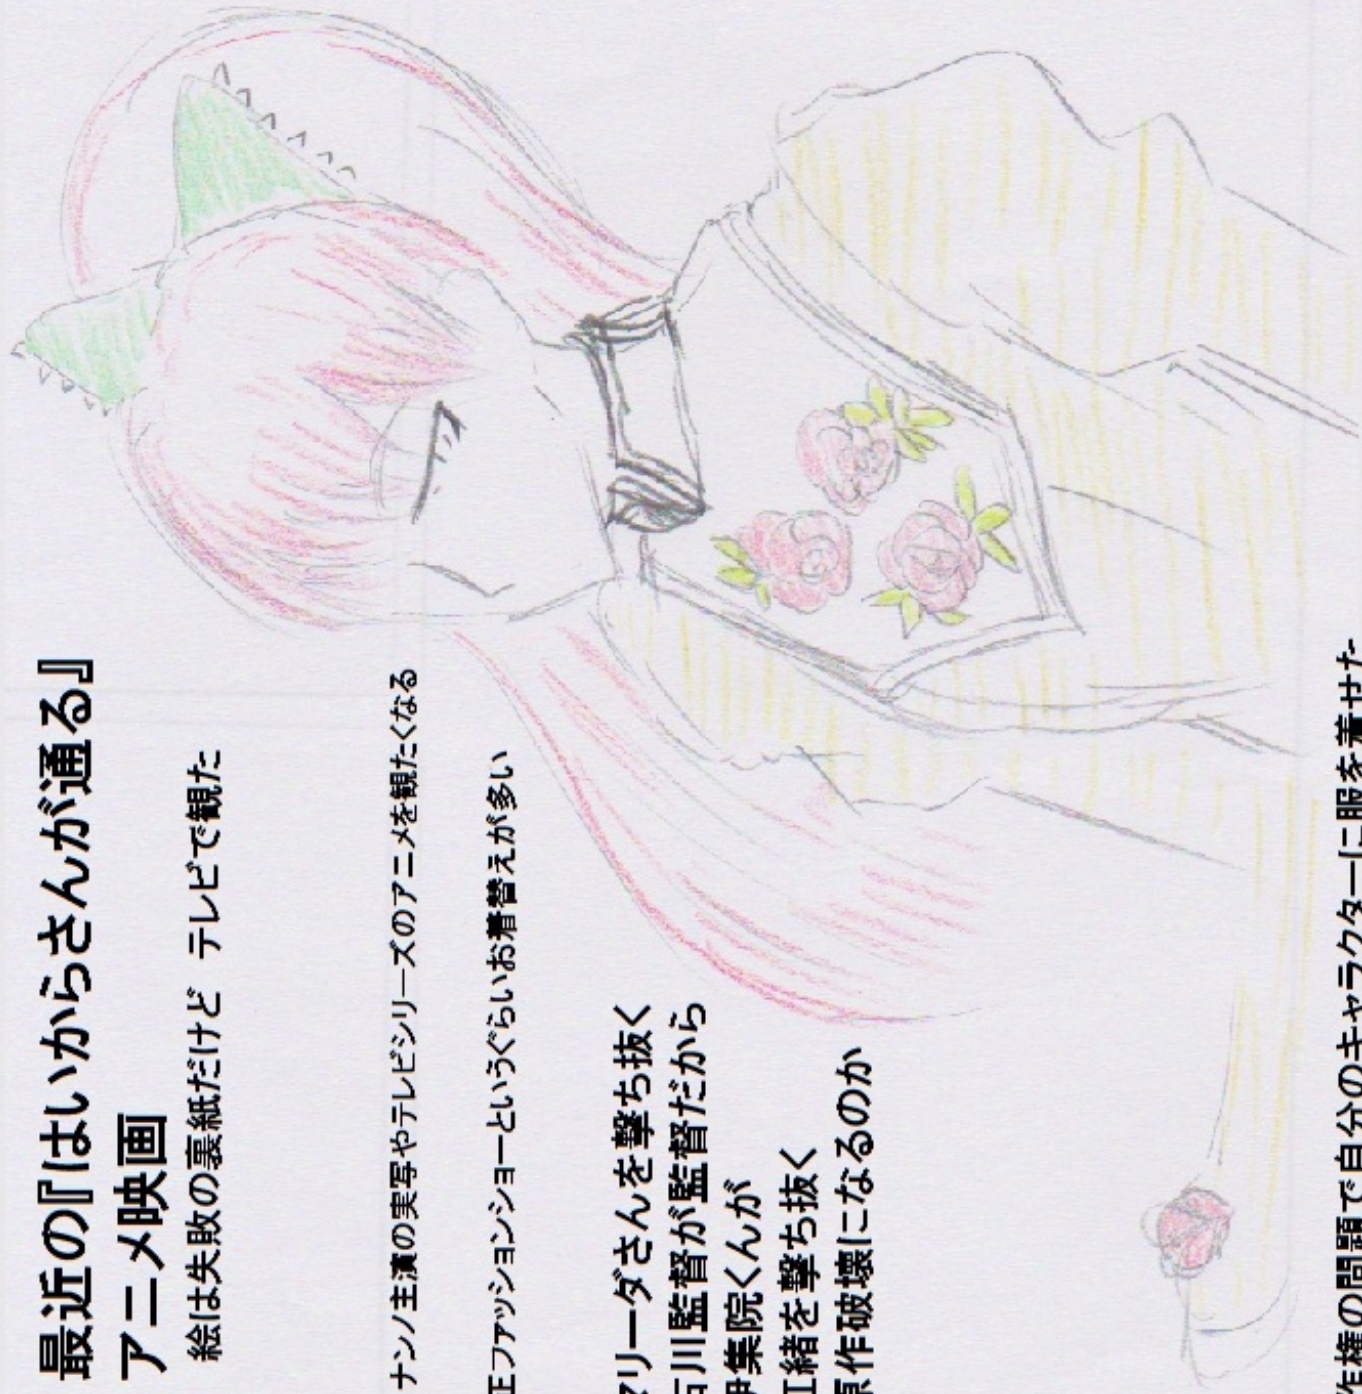 最近の『はいからさんが通る』
アニメ映画
絵は失敗の裏紙だけど テレビで観た
ナンノ主演の実写やテレビシリーズのアニメを観たくなる
正ファッションショーというぐらいお着替えが多い
マリーダさんを撃ち抜く
石川監督が監督だから
伊集院くんが
紅緒を撃ち抜く
原作破壊になるのか
作権の問題で自分のキャラクターに服を着せた